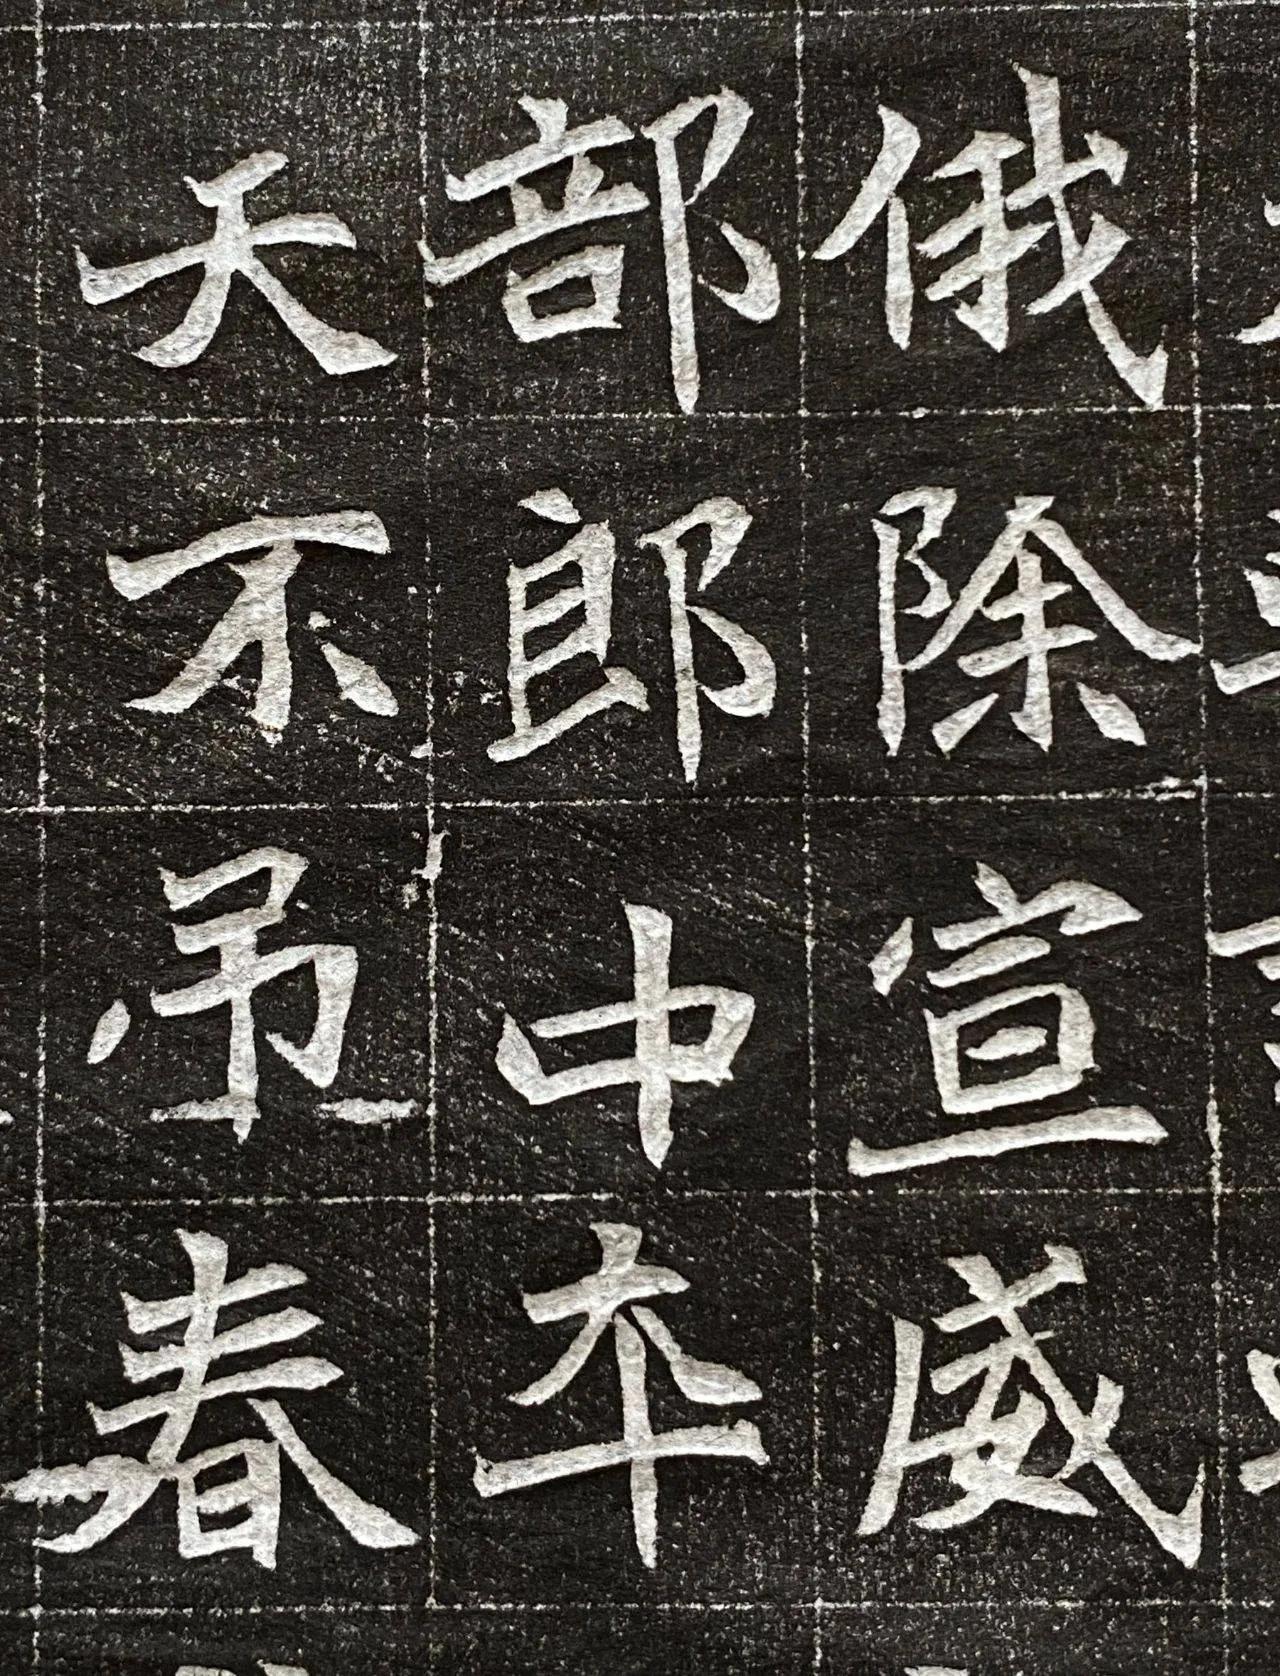 俄除宣威
部郎中夲
天不吊春